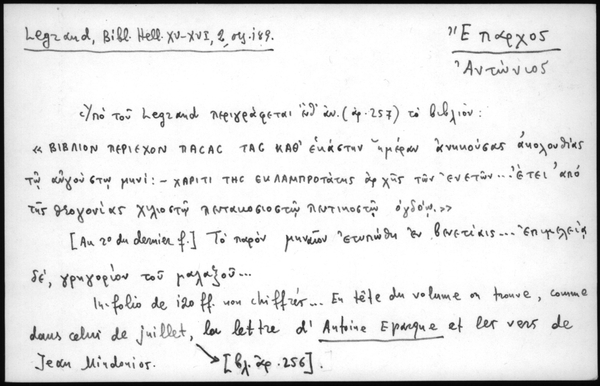 Legrand, Bibl. Hell. XV-XVI, 2, σελ. 189.
Ἔπαρχος
Ἀντώνιος
Ὑπὸ τοῦ Legrand περιγράφεται ἐνθ' ἀν. (ἀρ. 257) τὸ βιβλίον:
« ΒΙΒΛΙΟΝ ΠΕΡΙΕΧΟΝ ΠΑCAC TAC ΚΑΘ' ἑκάστην ἡμέραν ἀνηκούσας ἀκολουθίας
τῷ αὐγούστῳ μηνί: – ΧΑΡΙΤΙ ΤΗC ΕΚΛΑΜΠΡΟΤάτης ἀρχῆς τῶν ἑνετῶν... ἔτει ἀπὸ
τῆς θεογονίας χιλιοστῷ πεντακοσιοστῷ πεντικοστῷ ὀγδόῳ.»
[Au 2º du dernier f.] Τὸ παρὸν μηναῖον ἐτυπώθη ἐν βενετίαις... ἐπιμελείᾳ
δέ, γρηγορίου τοῦ μαλαξοῦ...
In-folio de 120 ff. non chiffrés... En tête du volume on trouve, comme
dans celui de juillet, la lettre d' Antoine Eparque et les vers de
Jean Mindonios. [βλ. ἀρ. 256].